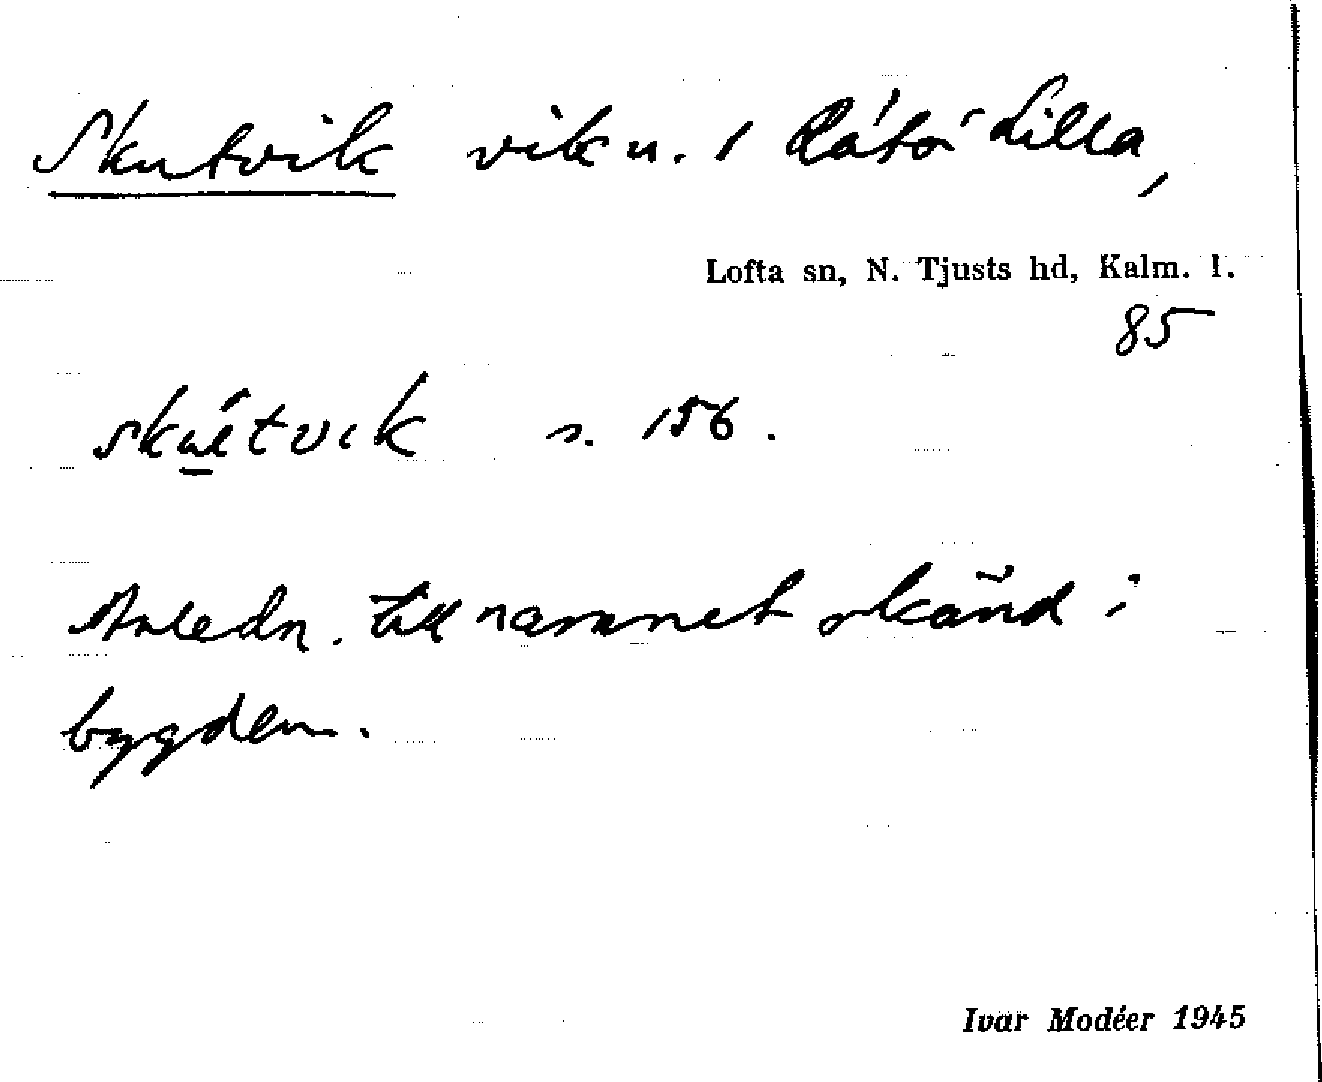 Skutvik vik u. / Råtö Lilla,
Lofta sn, N. Tjusts hd, Kalm. l.
85
s. 156.
Anledn. till namnet okänd i
bygden.
Ivar Modéer 1945